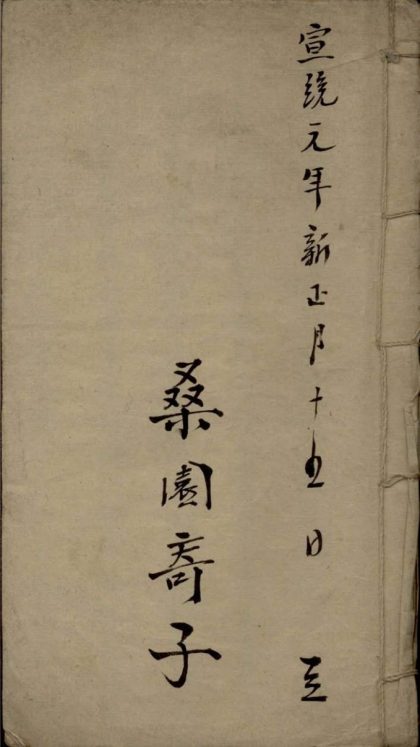 宣統元年新正月十五日 立
桑園寄子